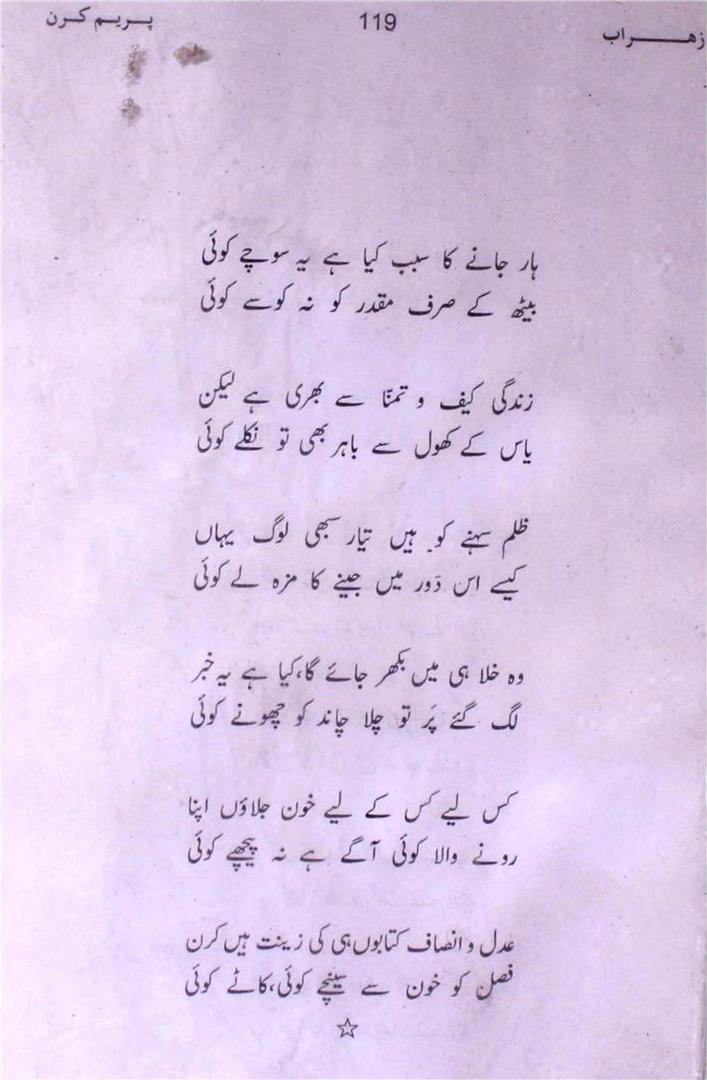 زهراب
119
پریم کرن
ہار جانے کا سبب کیا ہے یہ سوچے کوئی
بیٹھ کے صرف مقدر کو نہ کوسے کوئی
زندگی کیف و تمنّا سے بھری ہے لیکن
یاس کے کھول سے باہر بھی تو نکلے کوئی
ظلم سہنے کو ہیں تیّار سبھی لوگ یہاں
کیسے اس دَور میں جینے کا مزہ لے کوئی
وہ خلا ہی میں بکھر جائے گا،کیا ہے یہ خبر
لگ گئے پَر تو چلا چاند کو چھونے کوئی
کس لیے کس کے لیے خون جلاؤں اپنا
رونے والا کوئی آگے ہے نہ پیچھے کوئی
عدل و انصاف کتابوں ہی کی زینت ہیں کرن
فصل کو خون سے سینچے کوئی،کاٹے کوئی
☆